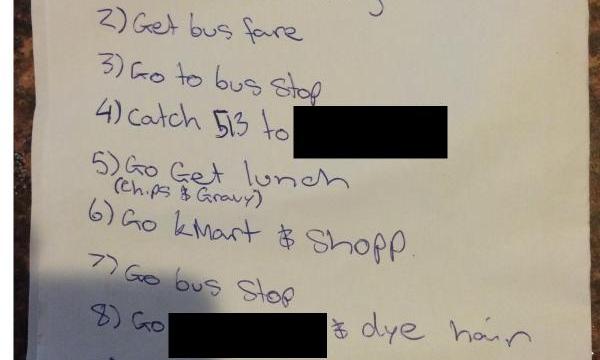 2) Get bus fare
3) Go to bus stop
4) Catch 513 to
5) Go Get lunch
(Chips & Gravy)
6) Go kMart & Shopp.
7) Go bus Stop
8) Go & dye hair